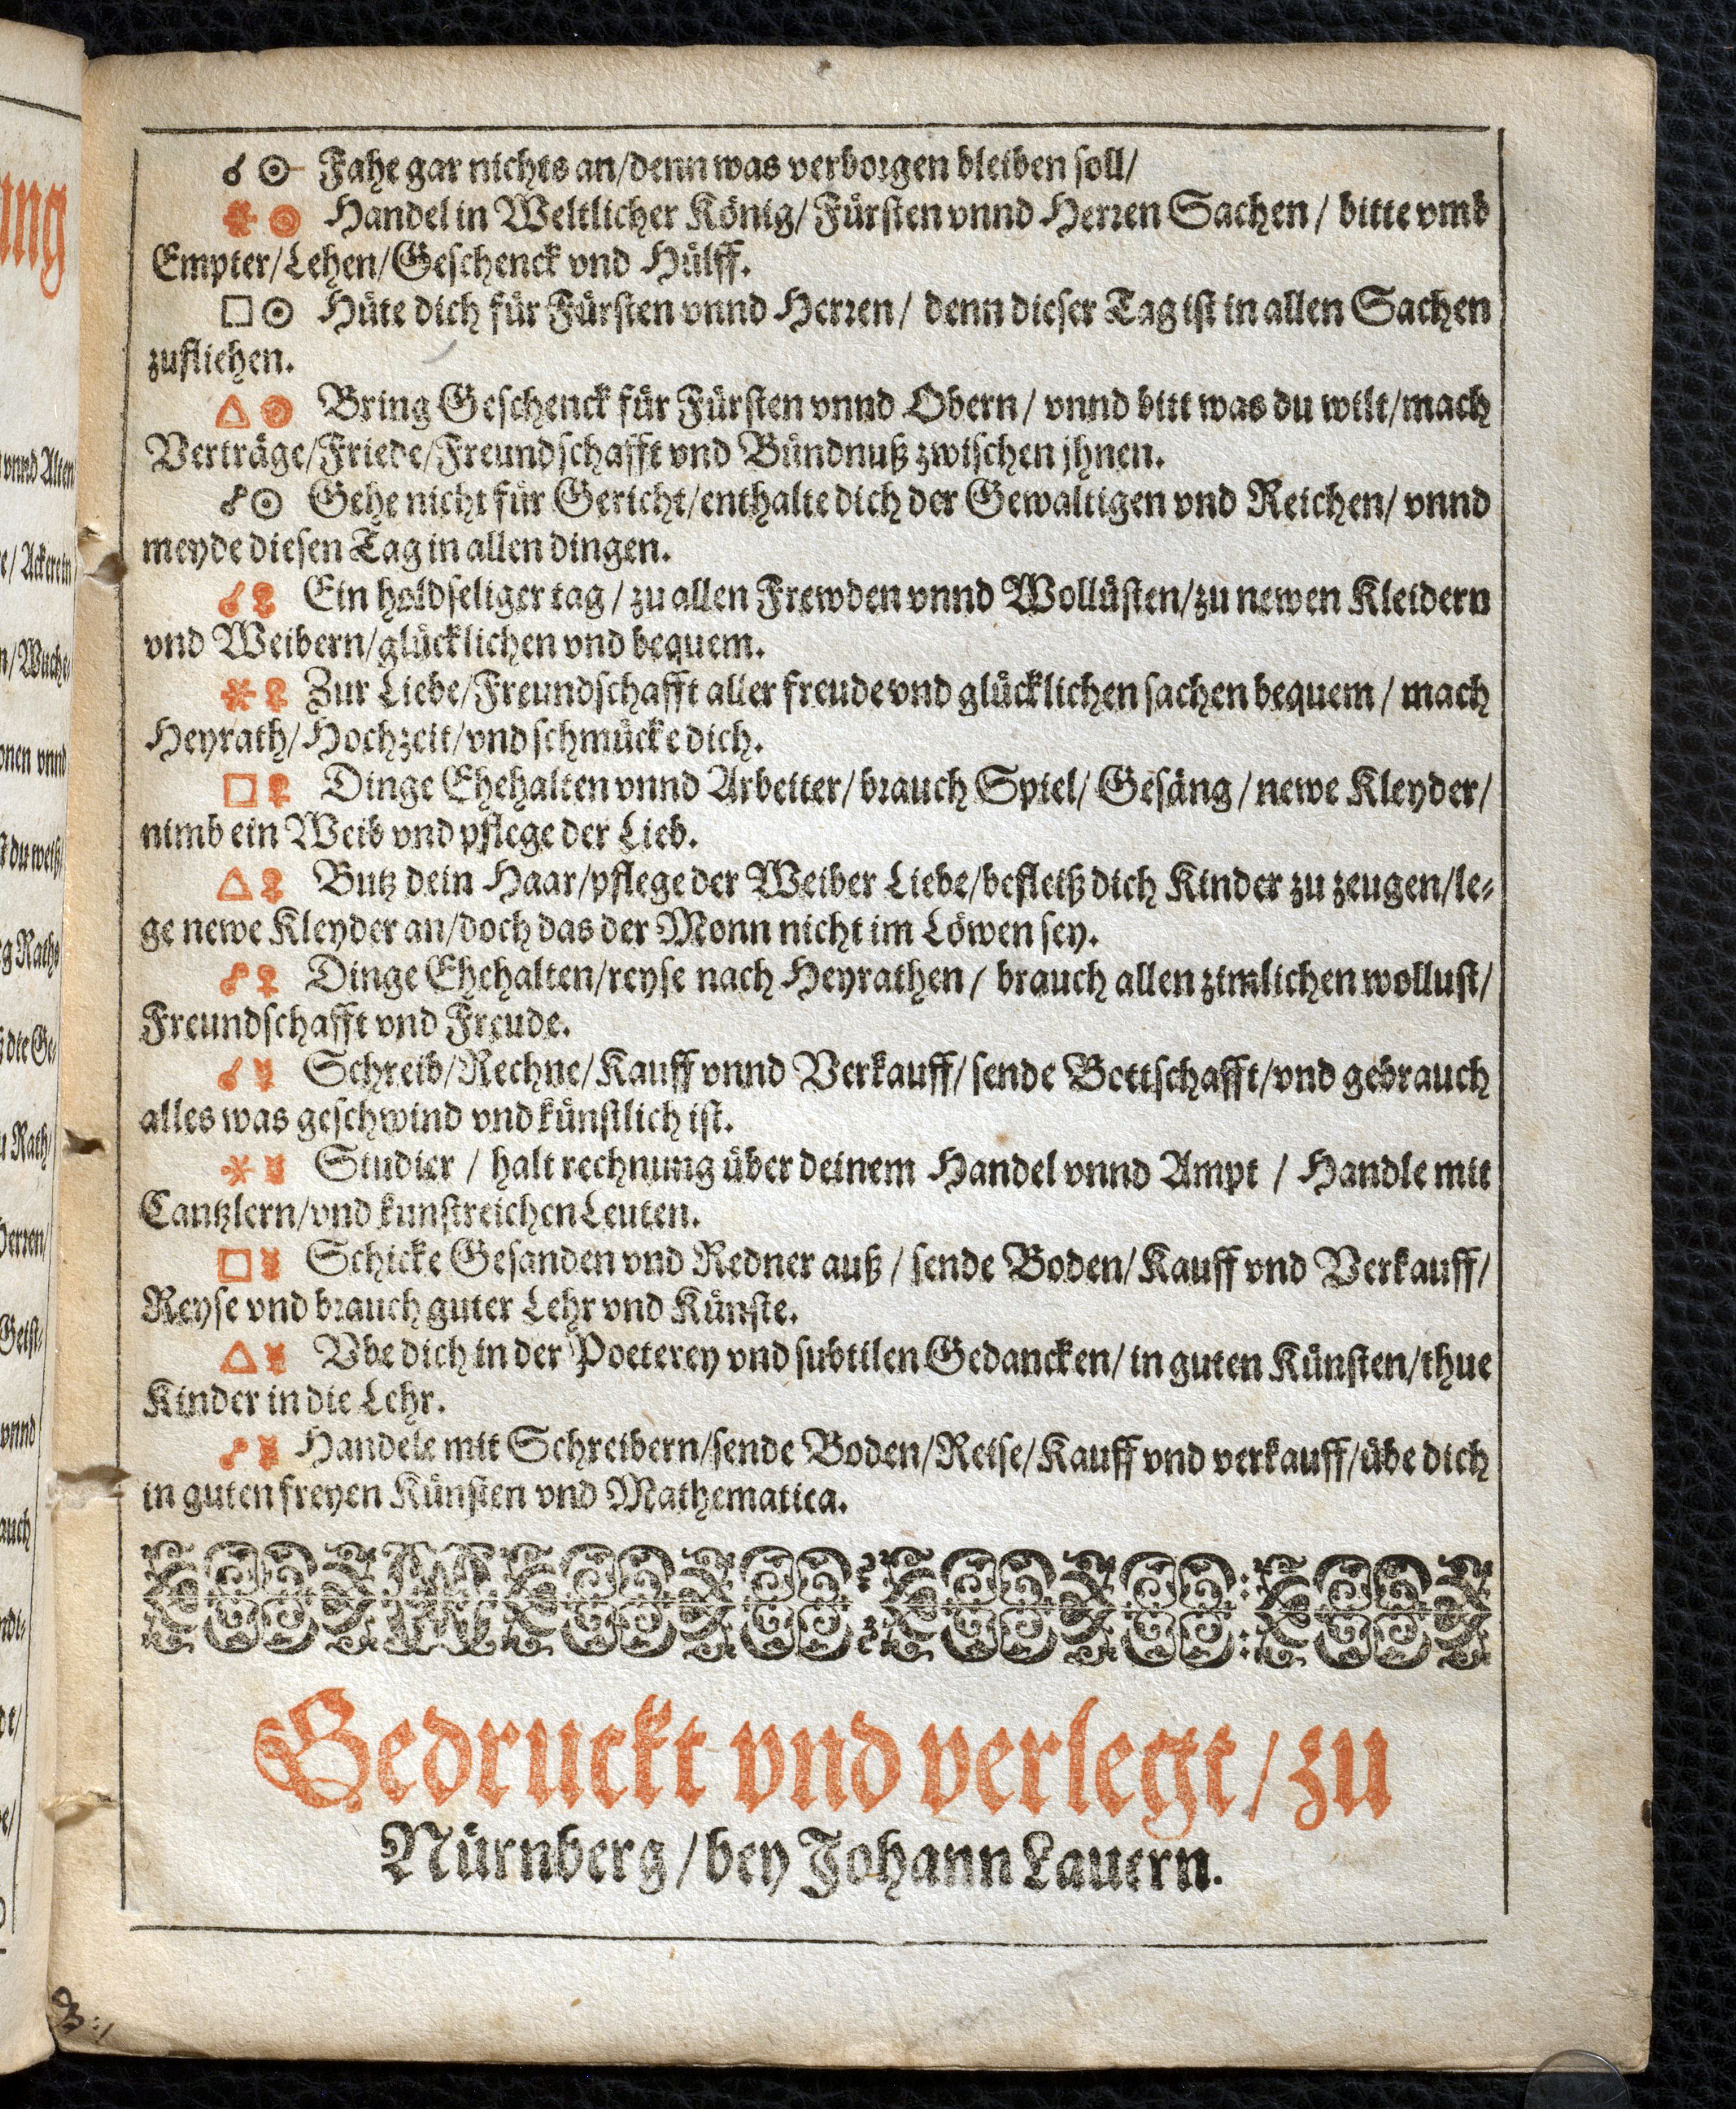 ☌ ☉ Fahe gar nichts an/denn was verborgen bleiben soll/
⚹ ☉ Handel in Weltlicher König/ Fürsten vnnd Herren Sachen / bitte vmb
Empter/Lehen/Geschenck vnd Hülff.
□ ☉ Hüte dich für Fürsten vnnd Herren / denn dieser Tag ist in allen Sachen
zufliehen.
△ ☉ Bring Geschenck für Fürsten vnnd Obern / vnnd bitt was du wilt/mach
Verträge/Friede/Freundschafft vnd Bündnuß zwischen jhnen.
☍ ☉ Gehe nicht für Gericht/enthalte dich der Gewaltigen vnd Reichen/ vnnd
meyde diesen Tag in allen dingen.
☌ ♀ Ein holdseliger tag / zu allen Frewden vnnd Wollüsten/zu newen Kleidern
vnd Weibern/glücklichen vnd bequem.
⚹ ♀ Zur Liebe/Freundschafft aller freude vnd glücklichen sachen bequem / mach
Heyrath/Hochzeit/vnd schmücke dich.
□ ♀ Dinge Ehehalten vnnd Arbeiter/brauch Spiel/ Gesäng / newe Kleyder/
nimb ein Weib vnd pflege der Lieb.
△ ♀ Butz dein Haar/pflege der Weiber Liebe/befleiß dich Kinder zu zeugen/le-
ge newe Kleyder an/doch das der Monn nicht im Löwen sey.
☍ ♀ Dinge Ehehalten/reyse nach Heyrathen / brauch allen zimlichen wollust/
Freundschafft vnd Freude.
☌ ☿ Schreib/Rechne/Kauff vnnd Verkauff/ sende Bottschafft/vnd gebrauch
alles was geschwind vnd künstlich ist.
⚹ ☿ Studier / halt rechnung über deinem Handel vnnd Ampt / Handle mit
Cantzlern/vnd kunstreichen Leuten.
□ ☿ Schicke Gesanden vnd Redner auß / sende Boden/ Kauff vnd Verkauff/
Reyse vnd brauch guter Lehr vnd Künste.
△ ☿ Vbe dich in der Poeterey vnd subtilen Gedancken/ in guten Künsten/thue
Kinder in die Lehr.
☍ ☿ Handele mit Schreibern/sende Boden/Reise/Kauff vnd verkauff/übe dich
in guten freyen Künsten vnd Mathematica.
Gedruckt vnd verlegt / zu
Nürnberg / bey Johann Lauern.